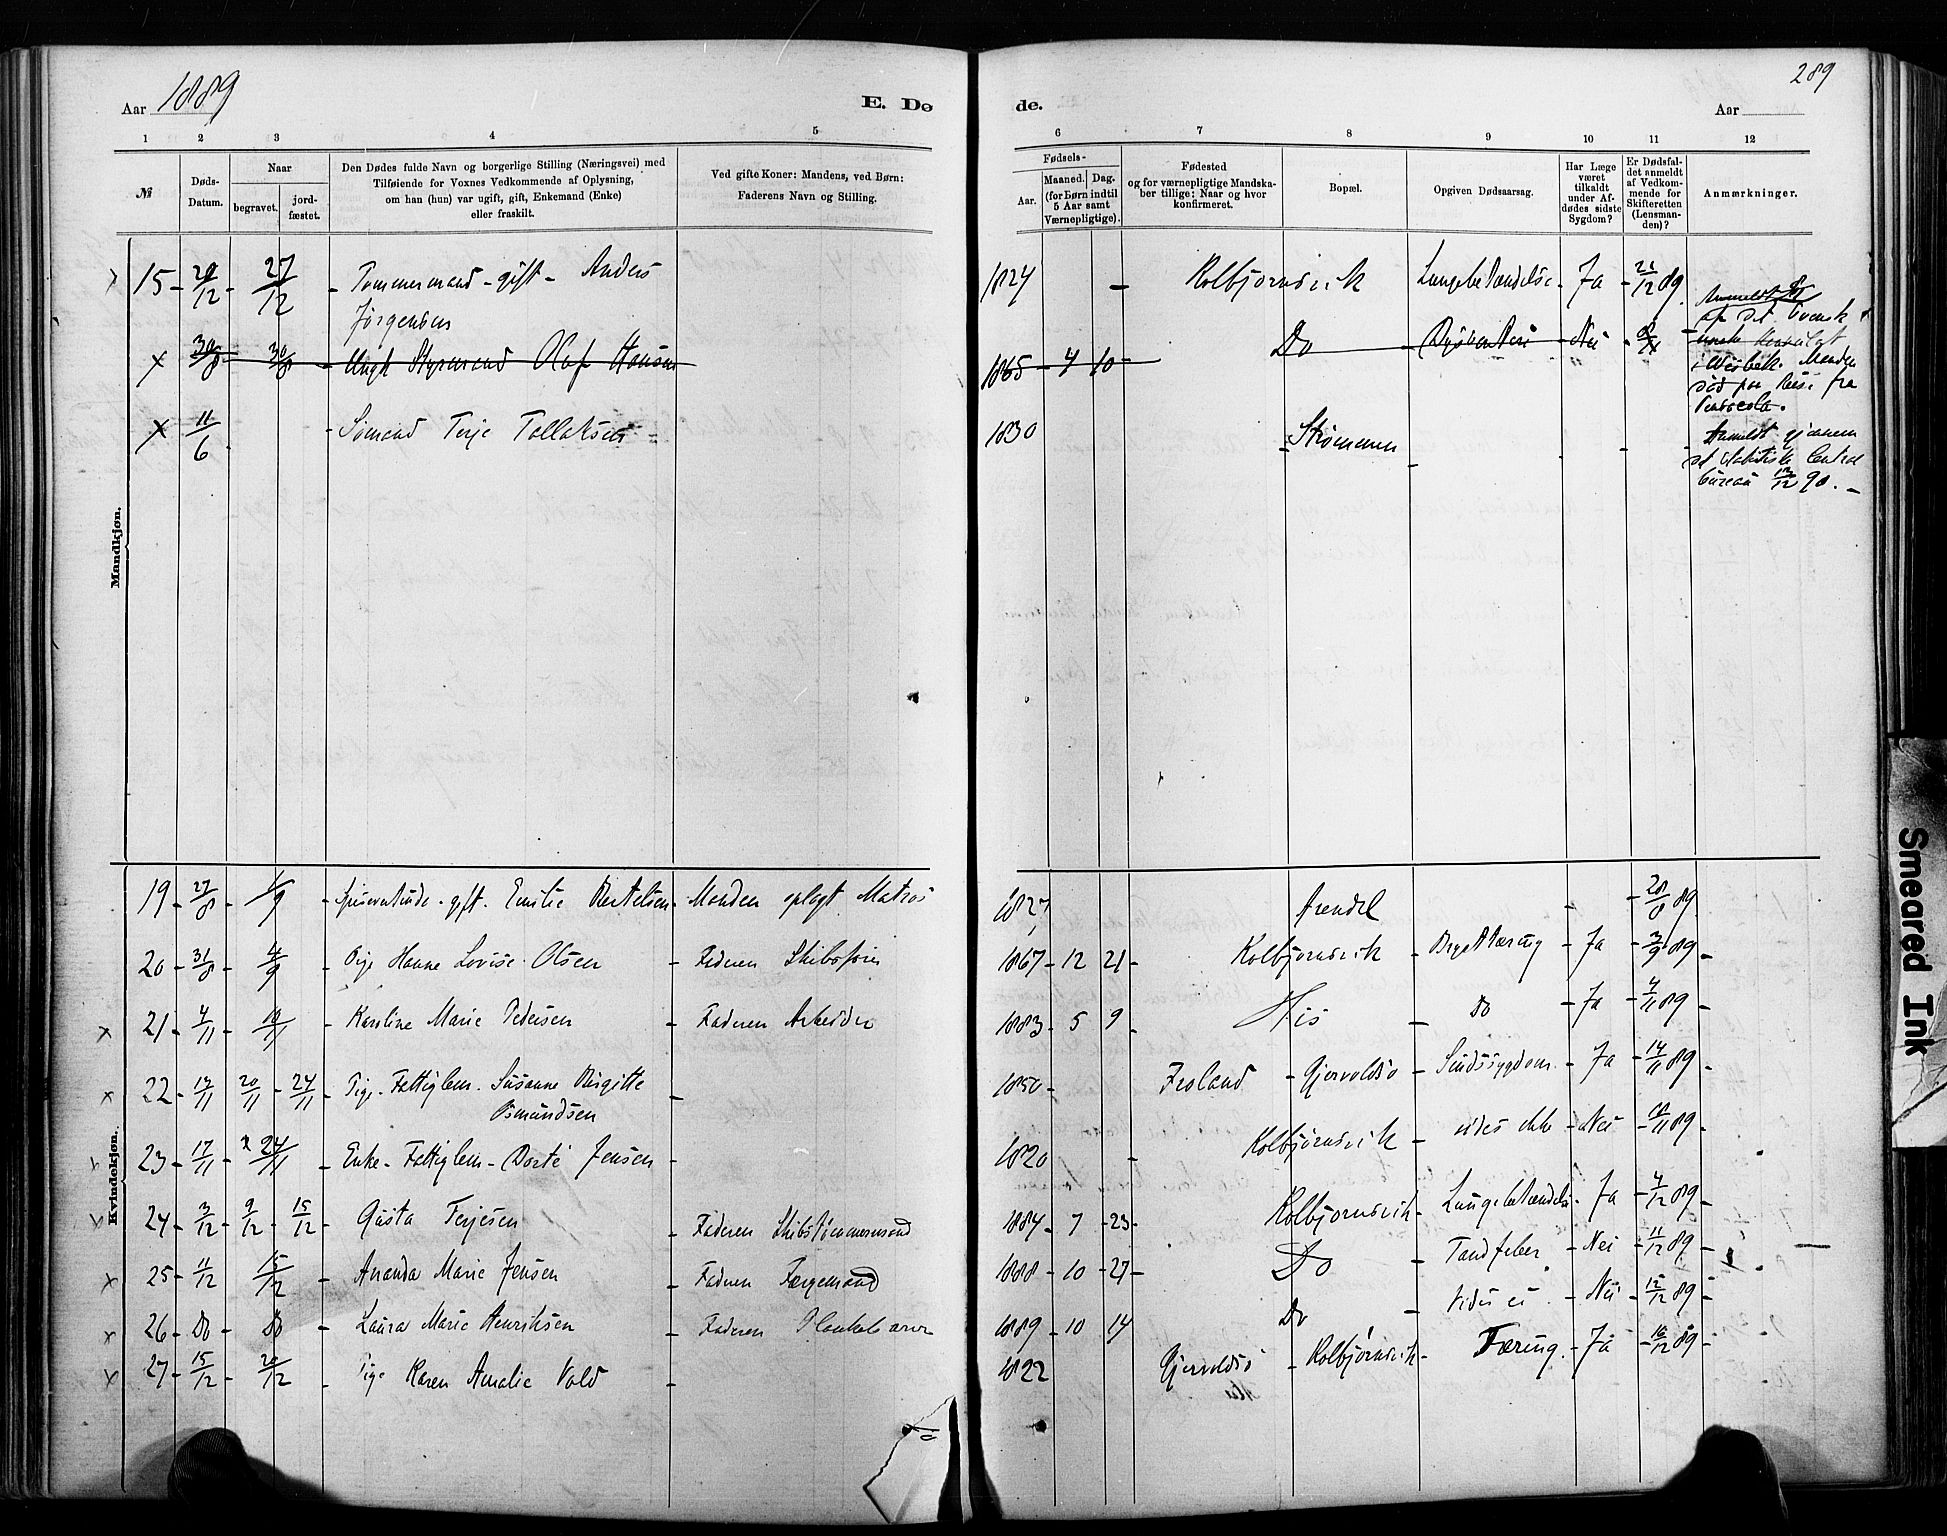 Aar 1889
E. Dø
de.
289
Aar
1 2 3 4 5
6 7 8 9 10 11 12
№
Døds-
Datum.
Naar
begravet.
jord-
fæstet.
Den Dødes fulde Navn og borgerlige Stilling (Næringsvei) med
Tilføiende for Voxnes Vedkommende af Oplysning,
om han (hun) var ugift, gift, Enkemand (Enke)
eller fraskilt.
Ved gifte Koner: Mandens, ved Børn:
Faderens Navn og Stilling.
Fødsels-
Aar.
Maaned. Dag.
(for Børn indtil
5 Aar samt
Værnepligtige).
Fødested
og for værnepligtige Mandska-
ber tillige: Naar og hvor
konfirmeret.
Bopæl.
Opgiven Dødsaarsag.
Har Læge
været
tilkaldt
under Af-
dødes sidste
Sygdom?
Er Dødsfal-
det anmeldt
af Vedkom-
mende for
Skifteretten
(Lensman-
den)?
Anmærkninger.
Mandkjøn.
15 - 20/12 - 27/12 - Tømmermand - gift - Anders
Jørgensen
1824 - Kolbjørnsvik Lungebetændelse - Ja - 21/12 89.
x 30/8 - 30/8 - Ungk Styrmand Olaf Hansen
1865 - 4 10 - Do - Dysenteri - Nei
af det Svensk
norske Konsulat
i Wisbek. Manden
død paa Reise fra
Pensacola.
x 11/6 - Sømand Terje Tallaksen -
1830 - Strømmen - - -
Anmeldt gjennem
det statistiske Central
bureau 12/12 90. -
Kvindekjøn.
19 - 27/8 - 1/9 - gft. Emilie Bertelsen - Manden oplagt Matros
1827 Arendal - - 28/8 89.
20 - 31/8 - 4/9 - Pige Hanne Lovise Olsen - Faderen Skibsfører
1867 - 12 21 - Kolbjørnsvik - Brysttæring - Ja - 3/9 89 -
x 21 - 4/11 - 10/11 - Karoline Marie Pedersen - Faderen Arbeider
1883 - 5 9 - His - Do - Ja - 4/11 89 -
x 22 - 12/11 20/11 - 24/11 - Pige - Fattiglem - Susanne Birgitte
Osmundsen -
1850 - Froland - Gjervoldsø - Sindssygdom - Ja - 14/11 89 -
23 - 17/11 - x 24/11 - Enke - Fattiglem - Dorte Jensen -
1820 - Kolbjørnsvik - vides ikke - Nei - 18/11 89 -
x 24 - 3/12 - 9/12 - 15/12 - Gusta Terjesen - Faderen Skibstømmermand
1884 - 7 - 23 - Kolbjørnsvik - Lungebetændelse - Ja - 4/12 89 -
x 25 - 11/12 15/12 - Ananda Marie Jensen - Faderen Færgemand
1888 - 10 - 27 - Do - Tandfeber - Nei - 11/12 89 -
x 26 - Do - Do - Laura Marie Henriksen - Faderen
1889 - 10 14 Do - vides ei - Nei - 12/12 89 -
x 27 - 15/12 - 20/12 - Pige Karen Amalie Vold -
1822 Gjervoldsø - Kolbjørnsvik - Tæring - Ja - 16/12 89 -
Smeared Ink